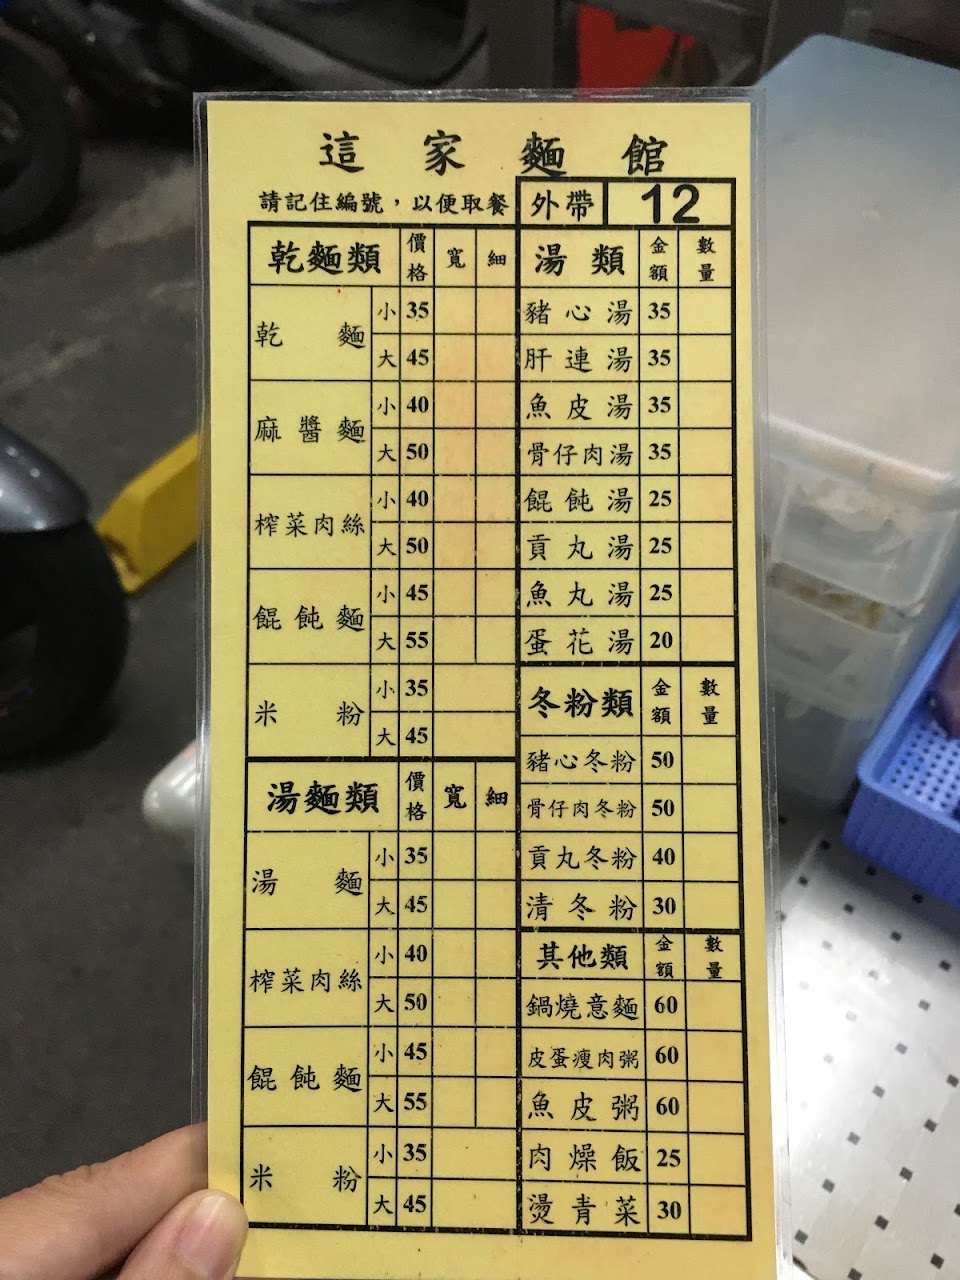 這家麵館
請記住編號，以便取餐 外帶 12
乾麵類 價格 寬 細
乾麵 小 35
大 45
麻醬麵 小 40
大 50
榨菜肉絲 小 40
大 50
餛飩麵 小 45
大 55
米粉 小 35
大 45
湯麵類 價格 寬 細
湯麵 小 35
大 45
榨菜肉絲 小 40
大 50
餛飩麵 小 45
大 55
米粉 小 35
大 45
湯類 金額 數量
豬心湯 35
肝連湯 35
魚皮湯 35
骨仔肉湯 35
餛飩湯 25
貢丸湯 25
魚丸湯 25
蛋花湯 20
冬粉類 金額 數量
豬心冬粉 50
骨仔肉冬粉 50
貢丸冬粉 40
清冬粉 30
其他類 金額 數量
鍋燒意麵 60
皮蛋瘦肉粥 60
魚皮粥 60
肉燥飯 25
燙青菜 30